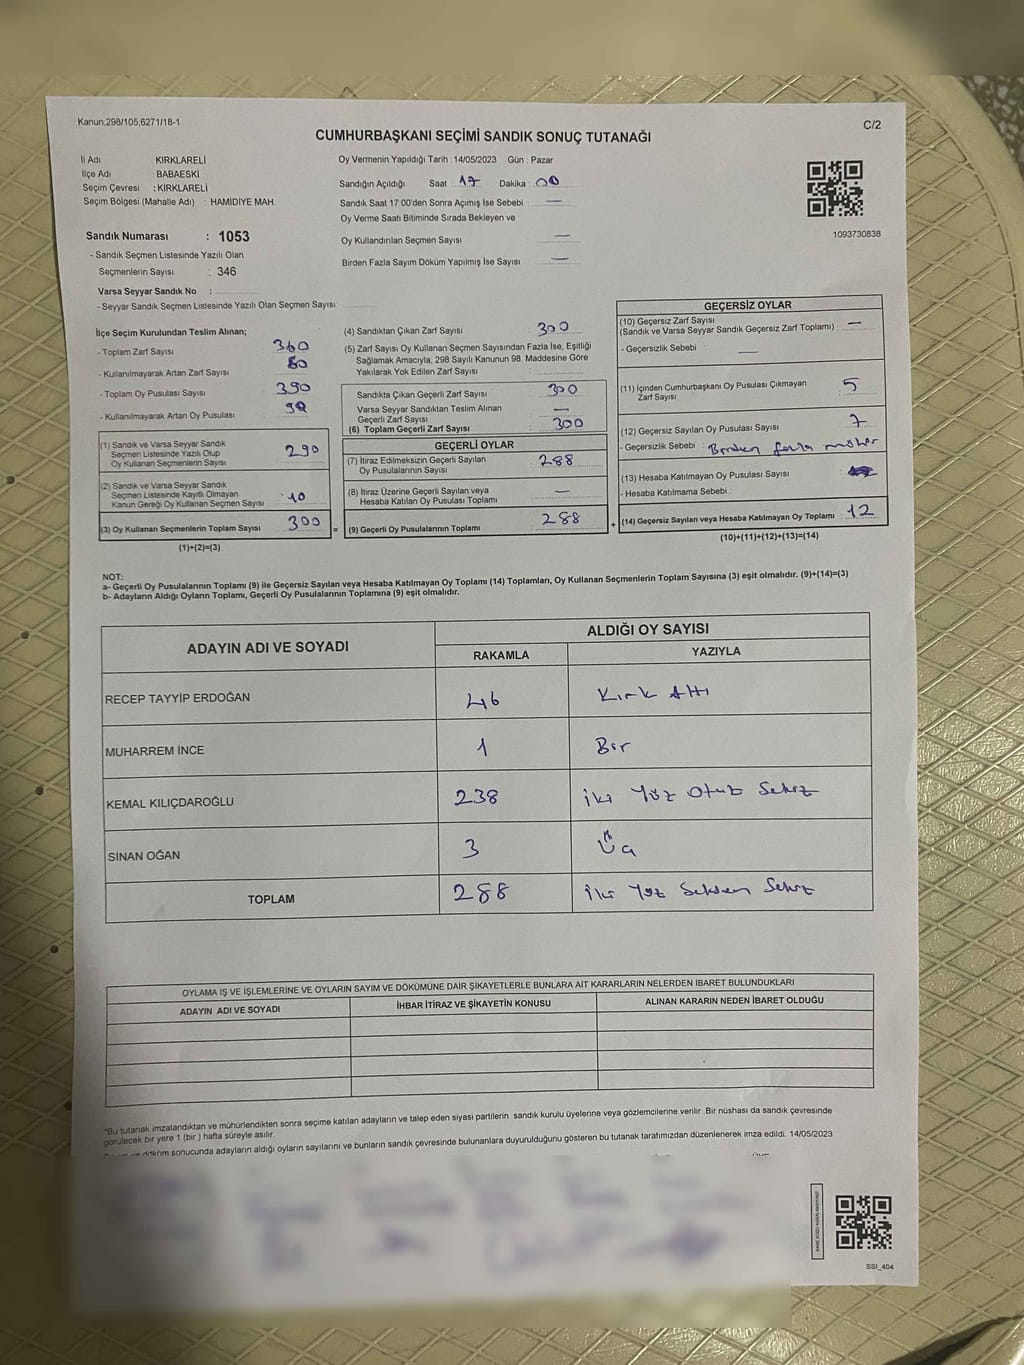 Kanun.298/105,6271/1B-1
C/2
CUMHURBAŞKANI SEÇİMİ SANDIK SONUÇ TUTANAĞI
İl Adı KIRKLARELİ
İlçe Adı BABAESKİ
Seçim Çevresi : KIRKLARELİ
Seçim Bölgesi (Mahalle Adı) : HAMİDİYE MAH.
Sandık Numarası : 1053
- Sandık Seçmen Listesinde Yazılı Olan
Seçmenlerin Sayısı : 346
Varsa Seyyar Sandık No :
- Seyyar Sandık Seçmen Listesinde Yazılı Olan Seçmen Sayısı
Oy Vermenin Yapıldığı Tarih : 14/05/2023 Gün : Pazar
Sandığın Açıldığı Saat 17 Dakika : 00
Sandık Saat 17:00'den Sonra Açımış İse Sebebi : —
Oy Verme Saati Bitiminde Sırada Bekleyen ve
Oy Kullandırılan Seçmen Sayısı —
Birden Fazla Sayım Döküm Yapılmış İse Sayısı —
1093730838
İlçe Seçim Kurulundan Teslim Alınan;
- Toplam Zarf Sayısı 360
- Kullanılmayarak Artan Zarf Sayısı 60
- Toplam Oy Pusulası Sayısı 390
- Kullanılmayarak Artan Oy Pusulası 90
(1) Sandık ve Varsa Seyyar Sandık
Seçmen Listesinde Yazılı Olup
Oy Kullanan Seçmenlerin Sayısı 290
(2) Sandık ve Varsa Seyyar Sandık
Seçmen Listesinde Kayıtlı Olmayan
Kanun Gereği Oy Kullanan Seçmen Sayısı 10
(3) Oy Kullanan Seçmenlerin Toplam Sayısı 300 =
(1)+(2)=(3)
(4) Sandıktan Çıkan Zarf Sayısı 300
(5) Zarf Sayısı Oy Kullanan Seçmen Sayısından Fazla İse, Eşitliği
Sağlamak Amacıyla, 298 Sayılı Kanunun 98. Maddesine Göre
Yakılarak Yok Edilen Zarf Sayısı
Sandıkta Çıkan Geçerli Zarf Sayısı 300
Varsa Seyyar Sandıktan Teslim Alınan
Geçerli Zarf Sayısı —
(6) Toplam Geçerli Zarf Sayısı 300
GEÇERLİ OYLAR
(7) İtiraz Edilmeksizin Geçerli Sayılan
Oy Pusulalarının Sayısı 288
(8) İtiraz Üzerine Geçerli Sayılan veya
Hesaba Katılan Oy Pusulası Toplamı —
(9) Geçerli Oy Pusulalarının Toplamı 288 +
GEÇERSİZ OYLAR
(10) Geçersiz Zarf Sayısı
(Sandık ve Varsa Seyyar Sandık Geçersiz Zarf Toplamı) : —
- Geçersizlik Sebebi : —
(11) İçinden Cumhurbaşkanı Oy Pusulası Çıkmayan
Zarf Sayısı 5
(12) Geçersiz Sayılan Oy Pusulası Sayısı 7
- Geçersizlik Sebebi : Birden fazla mühür
(13) Hesaba Katılmayan Oy Pusulası Sayısı
- Hesaba Katılmama Sebebi :
(14) Geçersiz Sayılan veya Hesaba Katılmayan Oy Toplamı : 12
(10)+(11)+(12)+(13)=(14)
NOT:
a- Geçerli Oy Pusulalarının Toplamı (9) ile Geçersiz Sayılan veya Hesaba Katılmayan Oy Toplamı (14) Toplamları, Oy Kullanan Seçmenlerin Toplam Sayısına (3) eşit olmalıdır. (9)+(14)=(3)
b- Adayların Aldığı Oyların Toplamı, Geçerli Oy Pusulalarının Toplamına (9) eşit olmalıdır.
ADAYIN ADI VE SOYADI
ALDIĞI OY SAYISI
RAKAMLA YAZIYLA
RECEP TAYYİP ERDOĞAN 46 Kırk Altı
MUHARREM İNCE 1 Bir
KEMAL KILIÇDAROĞLU 238 İki Yüz Otuz Sekiz
SİNAN OĞAN 3 Üç
TOPLAM 288 İki Yüz Seksen Sekiz
OYLAMA İŞ VE İŞLEMLERİNE VE OYLARIN SAYIM VE DÖKÜMÜNE DAİR ŞİKAYETLERLE BUNLARA AİT KARARLARIN NELERDEN İBARET BULUNDUKLARI
ADAYIN ADI VE SOYADI İHBAR İTİRAZ VE ŞİKAYETİN KONUSU ALINAN KARARIN NEDEN İBARET OLDUĞU
*Bu tutanak imzalandıktan ve mühürlendikten sonra seçime katılan adayların ve talep eden siyasi partilerin sandık kurulu üyelerine veya gözlemcilerine verilir. Bir nüshası da sandık çevresinde
görülecek bir yere 1 (bir) hafta süreyle asılır.
döküm sonucunda adayların aldığı oyların sayılarını ve bunların sandık çevresinde bulunanlara duyurulduğunu gösteren bu tutanak tarafımızdan düzenlenerek imza edildi. 14/05/2023
SSI_404